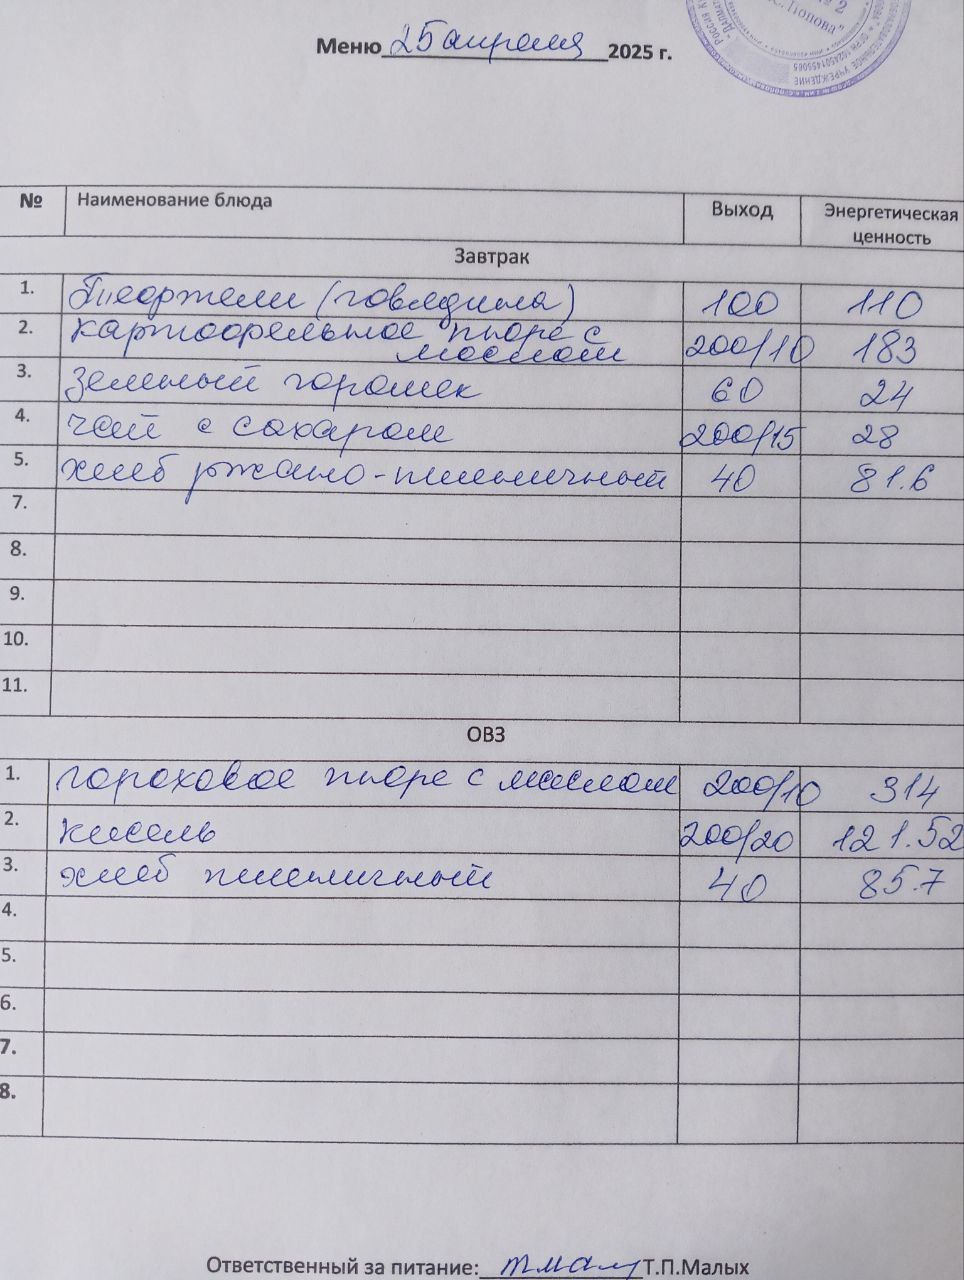 № 2
С. Попова"
Меню 25 апреля 2025 г.
№ Наименование блюда Выход Энергетическая ценность
Завтрак
1. (говядина) 100 110
2. картофельное пюре с
маслом 200/10 183
3. Зеленый горошек 60 24
4. чай с сахаром 200/15 28
5. хлеб ржано-пшеничный 40 81.6
7.
8.
9.
10.
11.
ОВЗ
1. гороховое пюре с маслом 200/10 314
2. кисель 200/20 121.52
3. хлеб пшеничный 40 85.7
4.
5.
6.
7.
8.
Ответственный за питание: Т.П.Малых